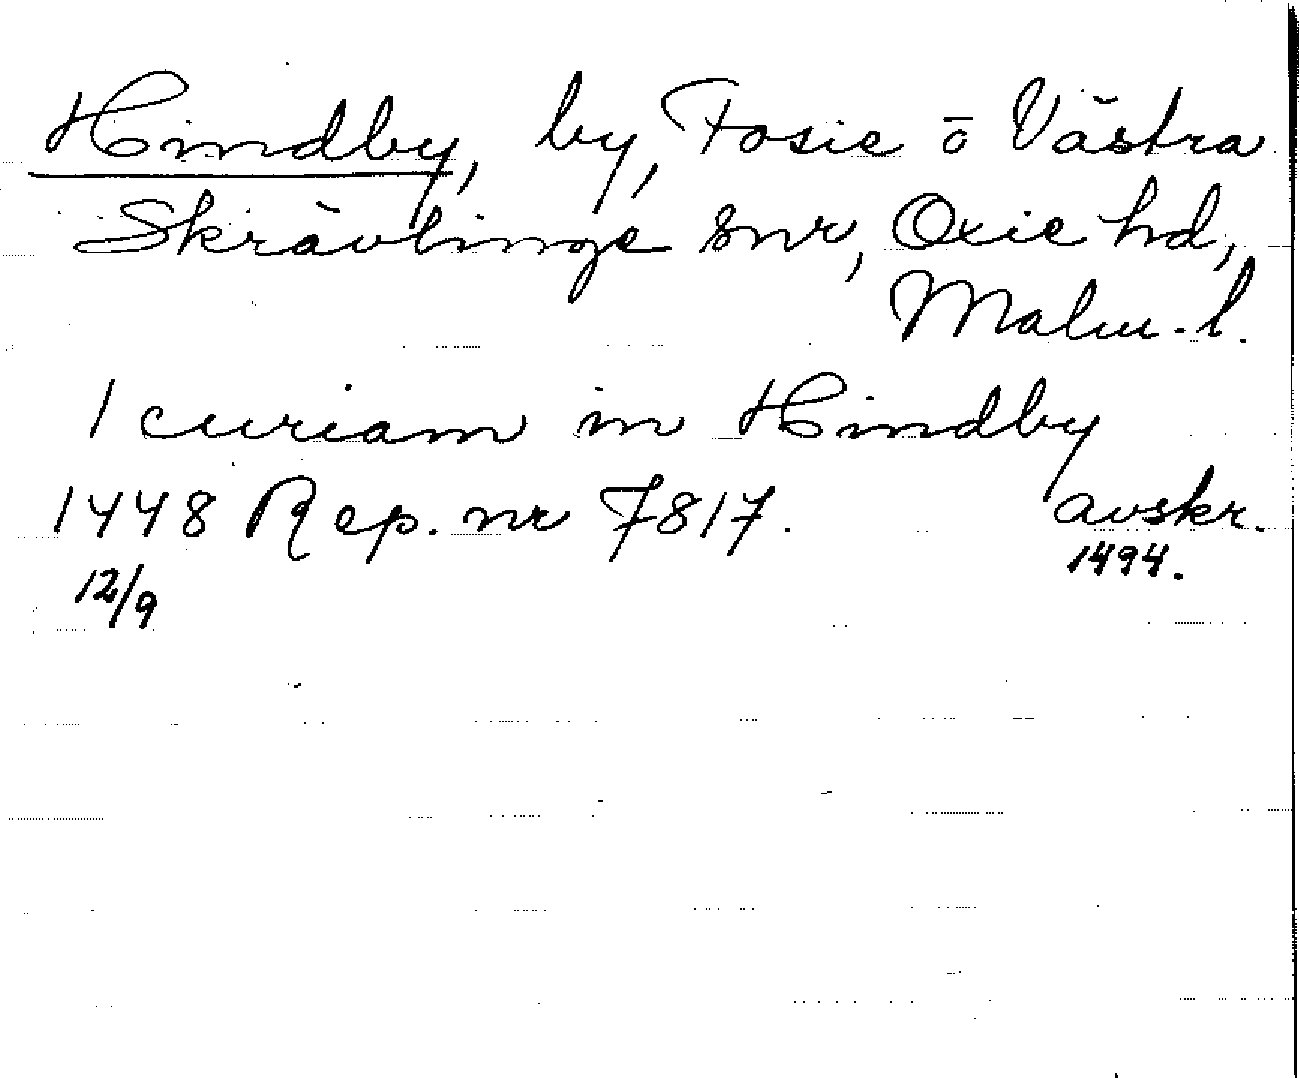 Hindby, by, Fosie ō Västra
Skrävlinge snr, Oxie hd,
Malm. l.
1 curiam in Hindby
1448 Rep. nr 7817. avskr.
12/9 1494.